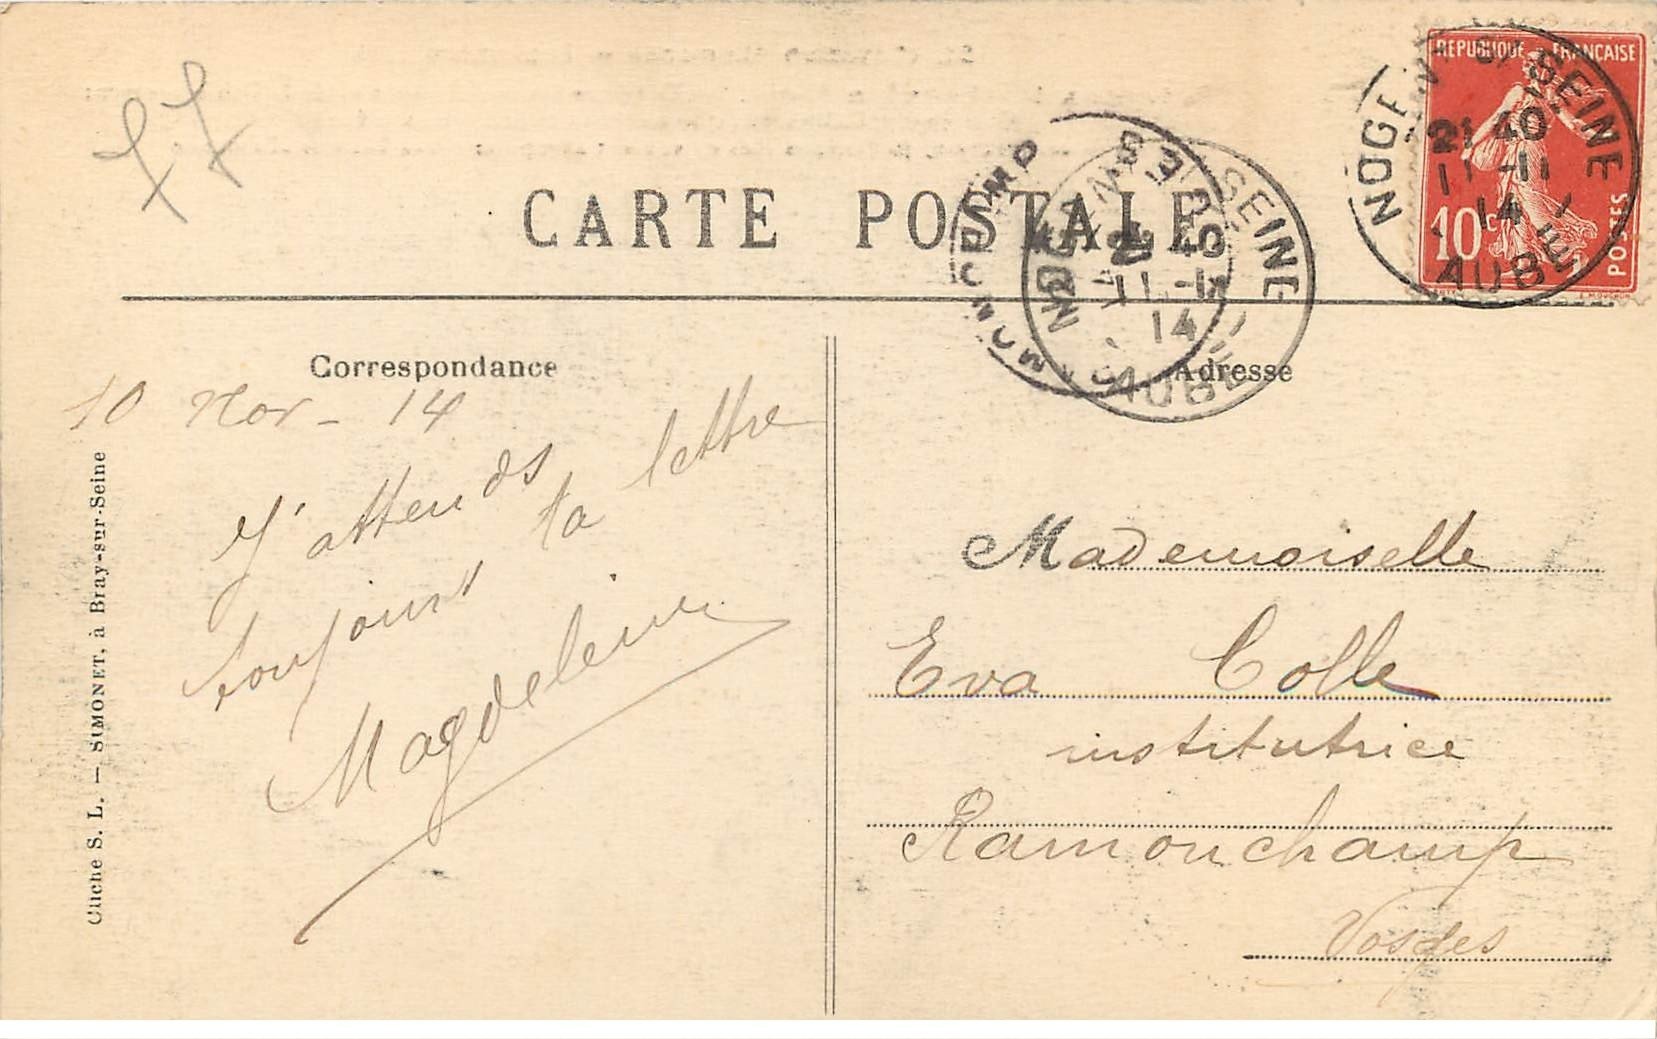 77
CARTE POSTALE
REPUBLIQUE FRANÇAISE
10c
POSTES
NOGENT S/ SEINE
21 40
11 -11
14
AUBE
NOGENT S/ SEINE
40
11 -11
14
AUBE
Correspondance
10 Nov - 14
J'attends
toujours ta lettre
Magdeleine
Cliché S. L. — SIMONET, à Bray-sur-Seine
Adresse
Mademoiselle
Eva Colle
institutrice
Ramonchamp
Vosges